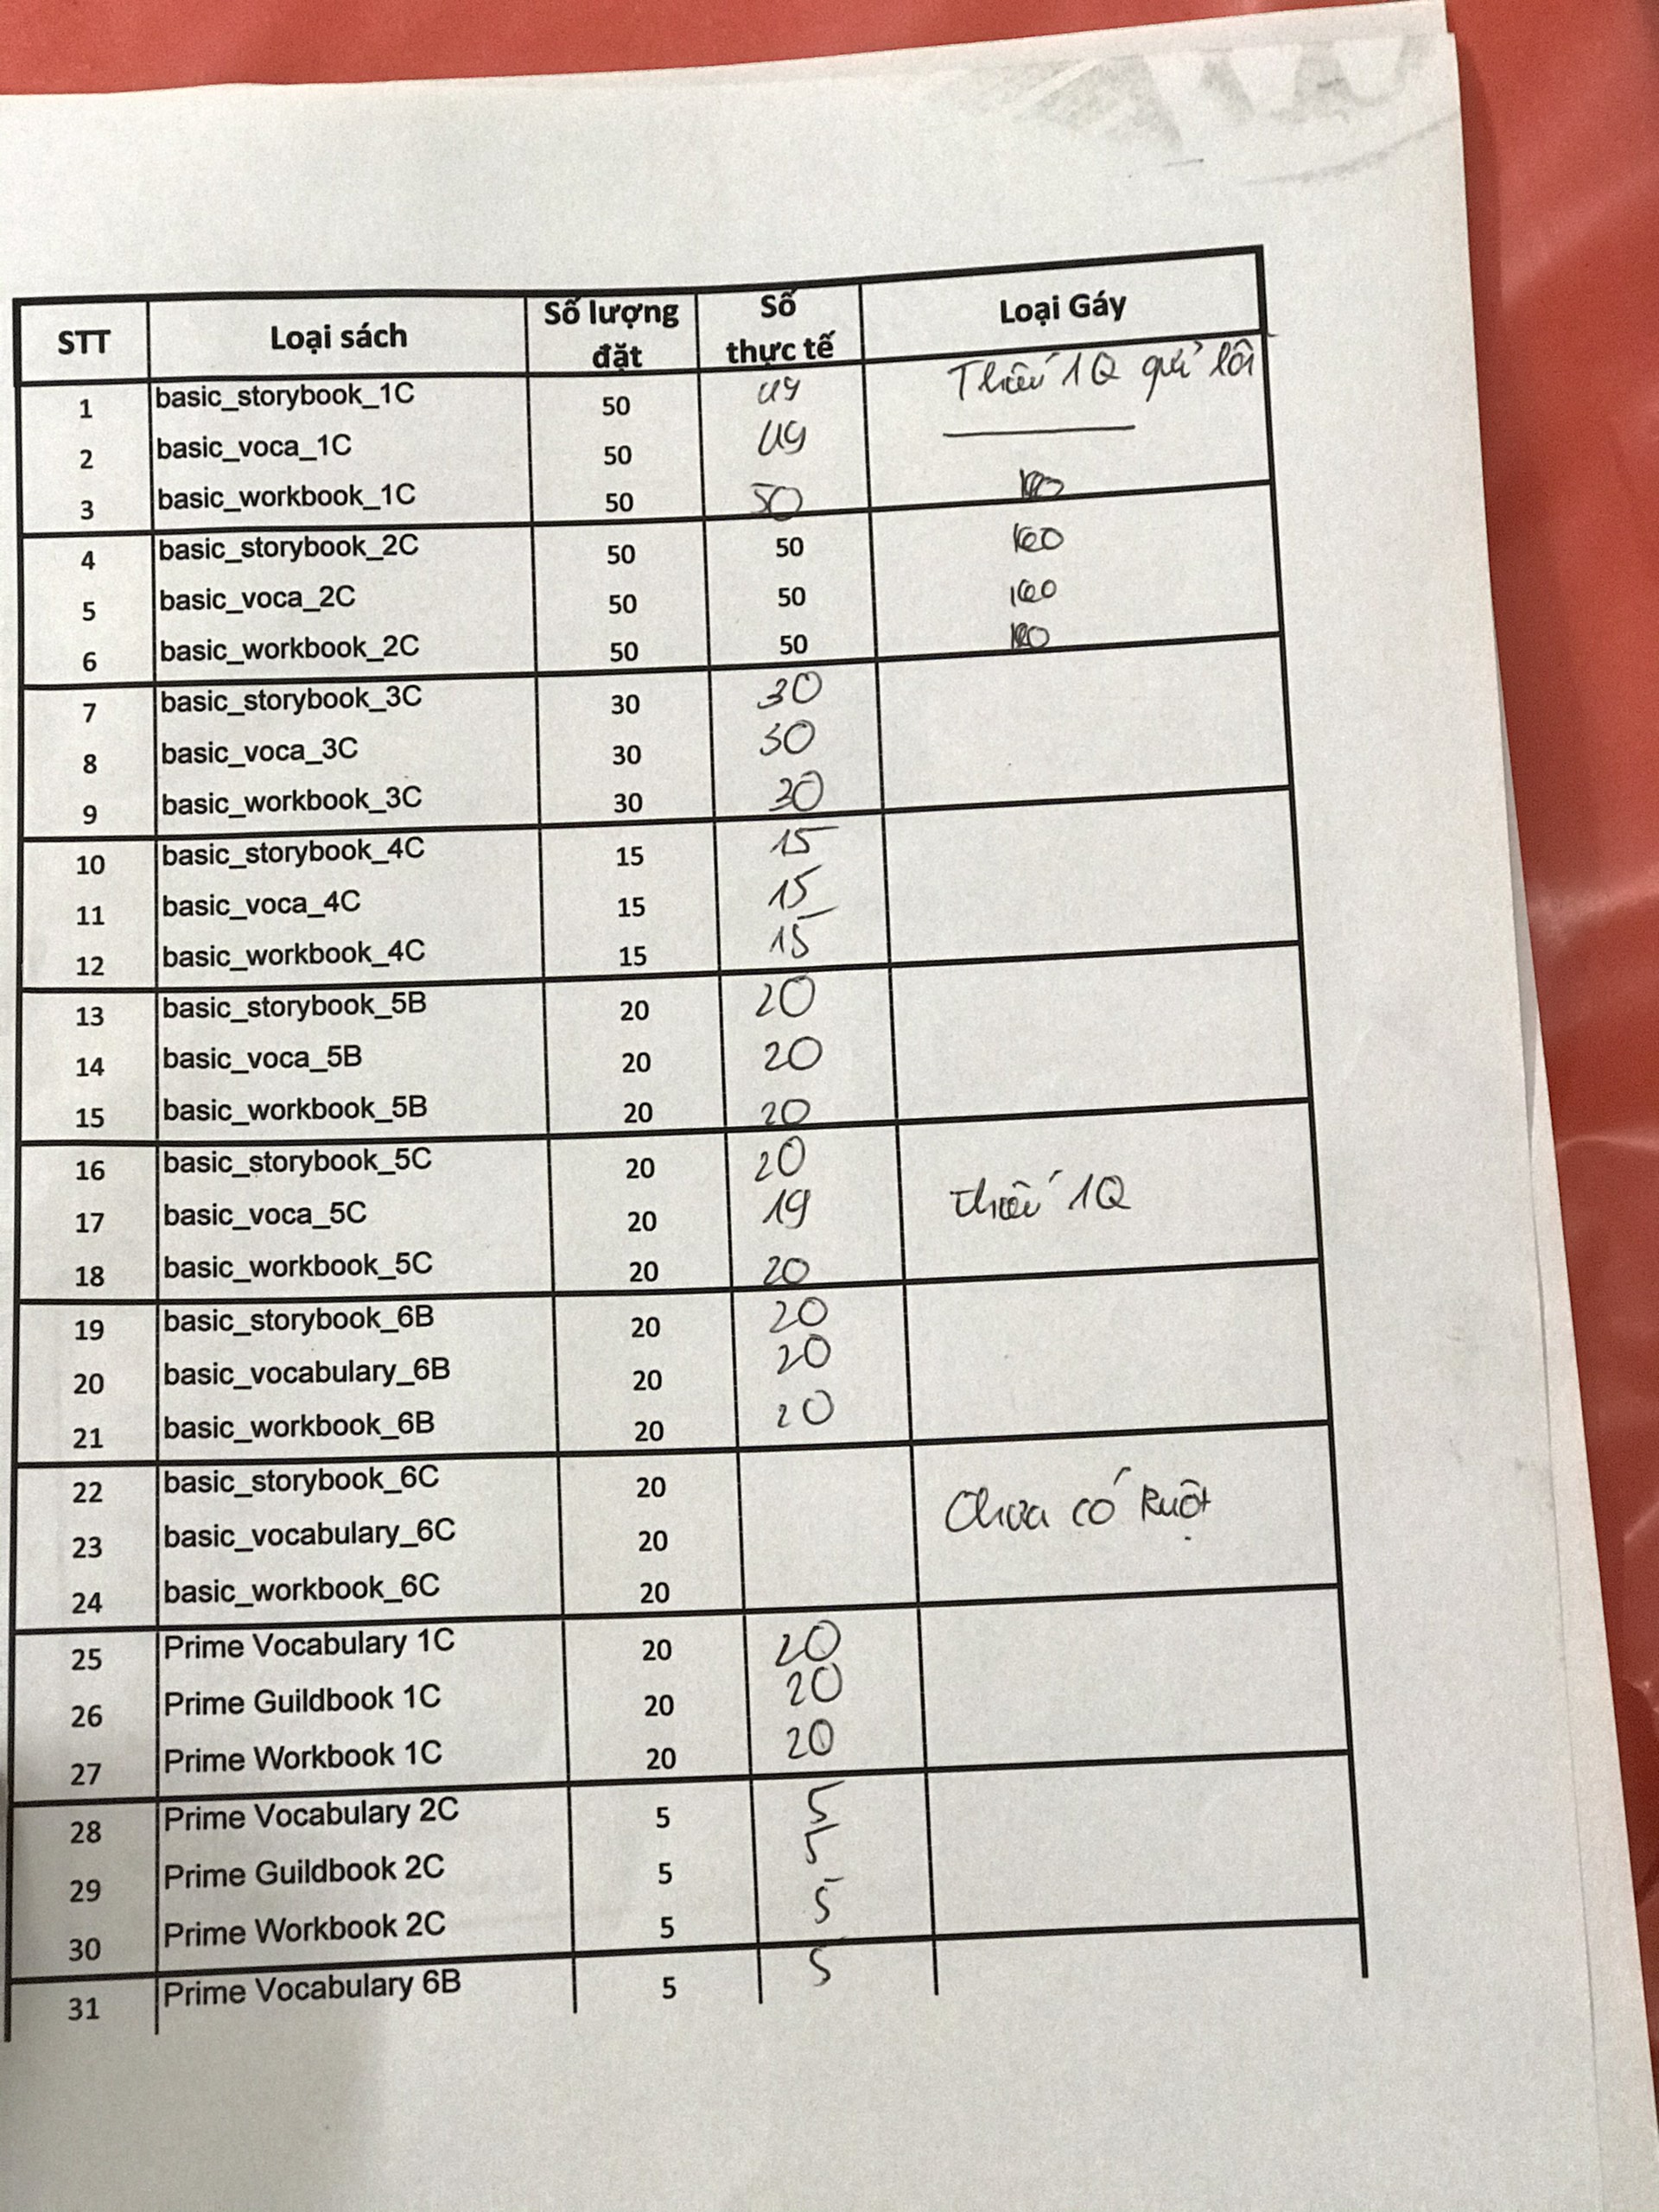 STT Loại sách Số lượng đặt Số thực tế Loại Gáy
1 basic_storybook_1C 50 49 Thiếu 1Q lỗi
2 basic_voca_1C 50 49
3 basic_workbook_1C 50 50
4 basic_storybook_2C 50 50
5 basic_voca_2C 50 50
6 basic_workbook_2C 50 50
7 basic_storybook_3C 30 30
8 basic_voca_3C 30 30
9 basic_workbook_3C 30 30
10 basic_storybook_4C 15 15
11 basic_voca_4C 15 15
12 basic_workbook_4C 15 15
13 basic_storybook_5B 20 20
14 basic_voca_5B 20 20
15 basic_workbook_5B 20 20
16 basic_storybook_5C 20 20
17 basic_voca_5C 20 19 Thiếu 1Q
18 basic_workbook_5C 20 20
19 basic_storybook_6B 20 20
20 basic_vocabulary_6B 20 20
21 basic_workbook_6B 20 20
22 basic_storybook_6C 20
23 basic_vocabulary_6C 20 Chưa có Ruột
24 basic_workbook_6C 20
25 Prime Vocabulary 1C 20 20
26 Prime Guildbook 1C 20 20
27 Prime Workbook 1C 20 20
28 Prime Vocabulary 2C 5 5
29 Prime Guildbook 2C 5 5
30 Prime Workbook 2C 5 5
31 Prime Vocabulary 6B 5 5